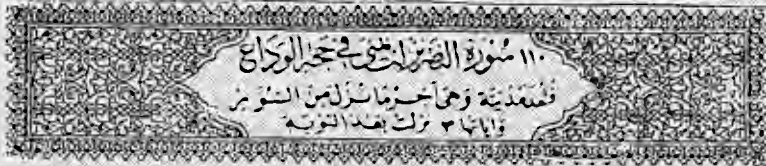 ١١٠ سورة النصر نزلت بمنى في حجة الوداع
فتعد مدنية وهي آخر ما نزل من السور
وآياتها ٣ نزلت بعد التوبة